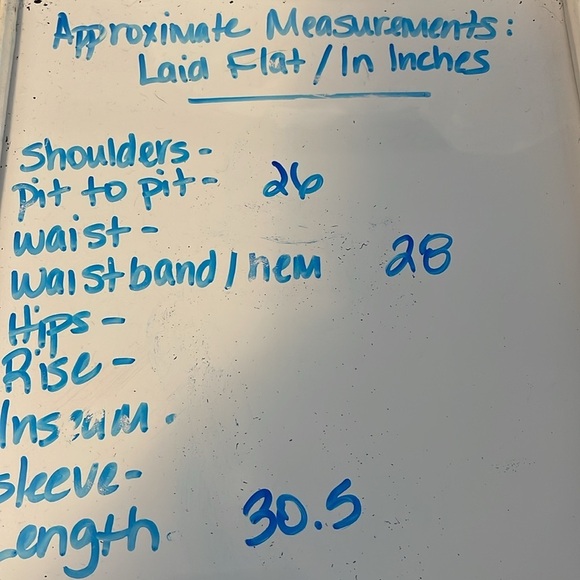 Approximate Measurements:
Laid Flat / In Inches
Shoulders-
pit to pit- 26
waist-
waistband / hem 28
Hips-
Rise-
Inseum.
sleeve-
Length 30.5